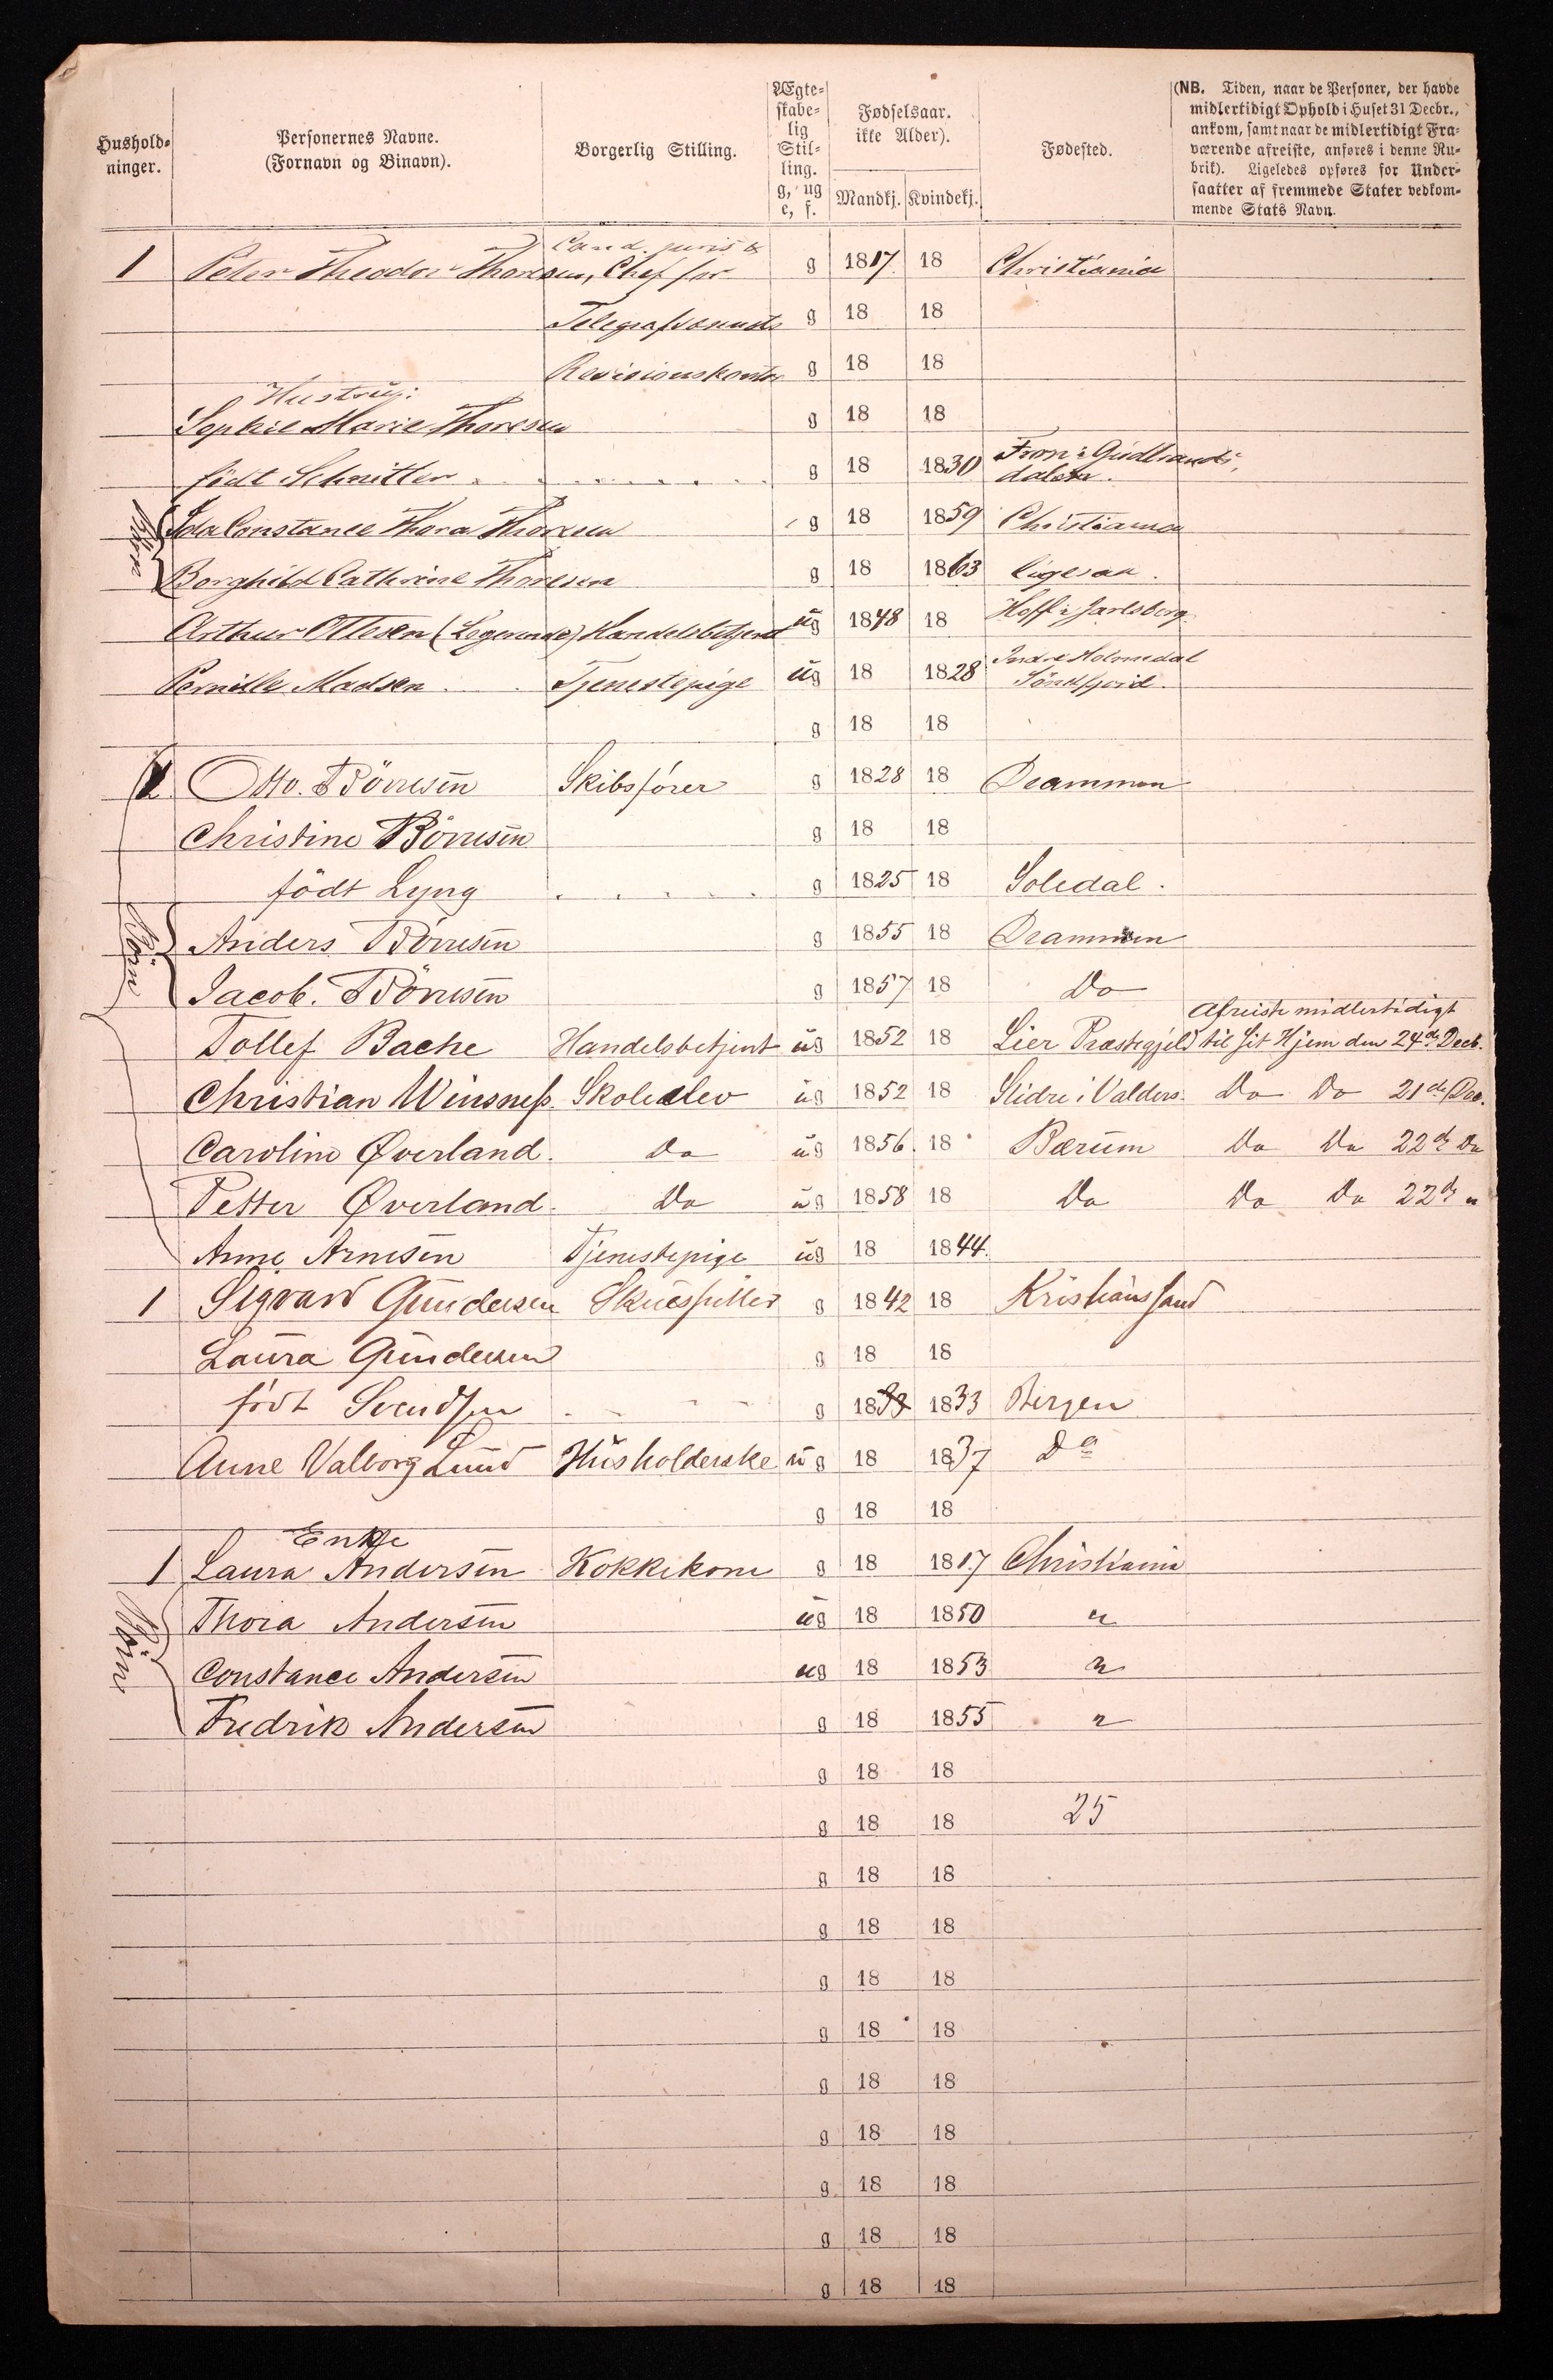 Hushold-
ninger.
Personernes Navne.
(Fornavn og Binavn).
Borgerlig Stilling.
Ægte-
skabe-
lig
Stil-
ling.
g, ug
e, f.
Fødselsaar.
ikke Alder).
Mandkj. Kvindekj.
Fødested.
(NB. Tiden, naar de Personer, der havde
midlertidigt Ophold i Huset 31 Decbr.,
ankom, samt naar de midlertidigt Fra-
værende afreiste, anføres i denne Ru-
brik). Ligeledes opføres for Under-
saatter af fremmede Stater vedkom-
mende Stats Navn.
Cand. juris &
1 Peter Theodor Thoresen, Chef for g 1817 18 Christiania
Telegrafvæsnets g 18 18
Revisionskontor g 18 18
Hustru:
Sophie Marie Thoresen g 18 18
født Schnitler g 18 1830 Fron i Gudbrands-
dalen.
Børn
Ida Constance Thora Thoresen g 18 1859 Christiania
Borghild Cathrine Thoresen g 18 1863 ligesaa.
Arthur Ottesen (Logerende) Handelsbetjent ug 1848 18 Hoff i Jarlsberg
Pernille Madsen Tjenestepige ug 18 1828 Indre Holmedal
Söndfjord.
g 18 18
1 Otto. Börresen Skibsfører g 1828 18 Drammen
Christine Börresen g 18 18
født Lyng g 1825 18 Soledal.
Börn
Anders Börresen g 1855 18 Drammen
Jacob. Börresen g 1857 18 Do
Afreiste midlertidigt
Tollef Bache Handelsbetjent ug 1852 18 Lier Præstegjeld til sit Hjem den 24de Decb.
Christian Winsness. Skoleelev ug 1852 18 Slidre i Valders. Do Do 21de Dec.
Caroline Øverland. Do ug 1856. 18 Bærum Do Do 22de Do
Petter Øverland. Do ug 1858 18 Do Do Do 22de "
Anne Arnesen Tjenestepige ug 18 1844.
1 Sigvard Gundersen Skuespiller g 1842 18 Kristianssand
Laura Gundersen g 18 18
født Svendsen g 1833 1833 Bergen
Anne Valborg Lund Husholderske ug 18 1837 Do
g 18 18
Enke
1 Laura Andersen Kokkekone g 18 1817 Christiania
Börn
Thora Andersen ug 18 1850 "
Constance Andersen ug 18 1853 "
Fredrik Andersen g 18 1855 "
g 18 18
g 18 18 25
g 18 18
g 18 18
g 18 18
g 18 18
g 18 18
g 18 18
g 18 18
g 18 18
g 18 18